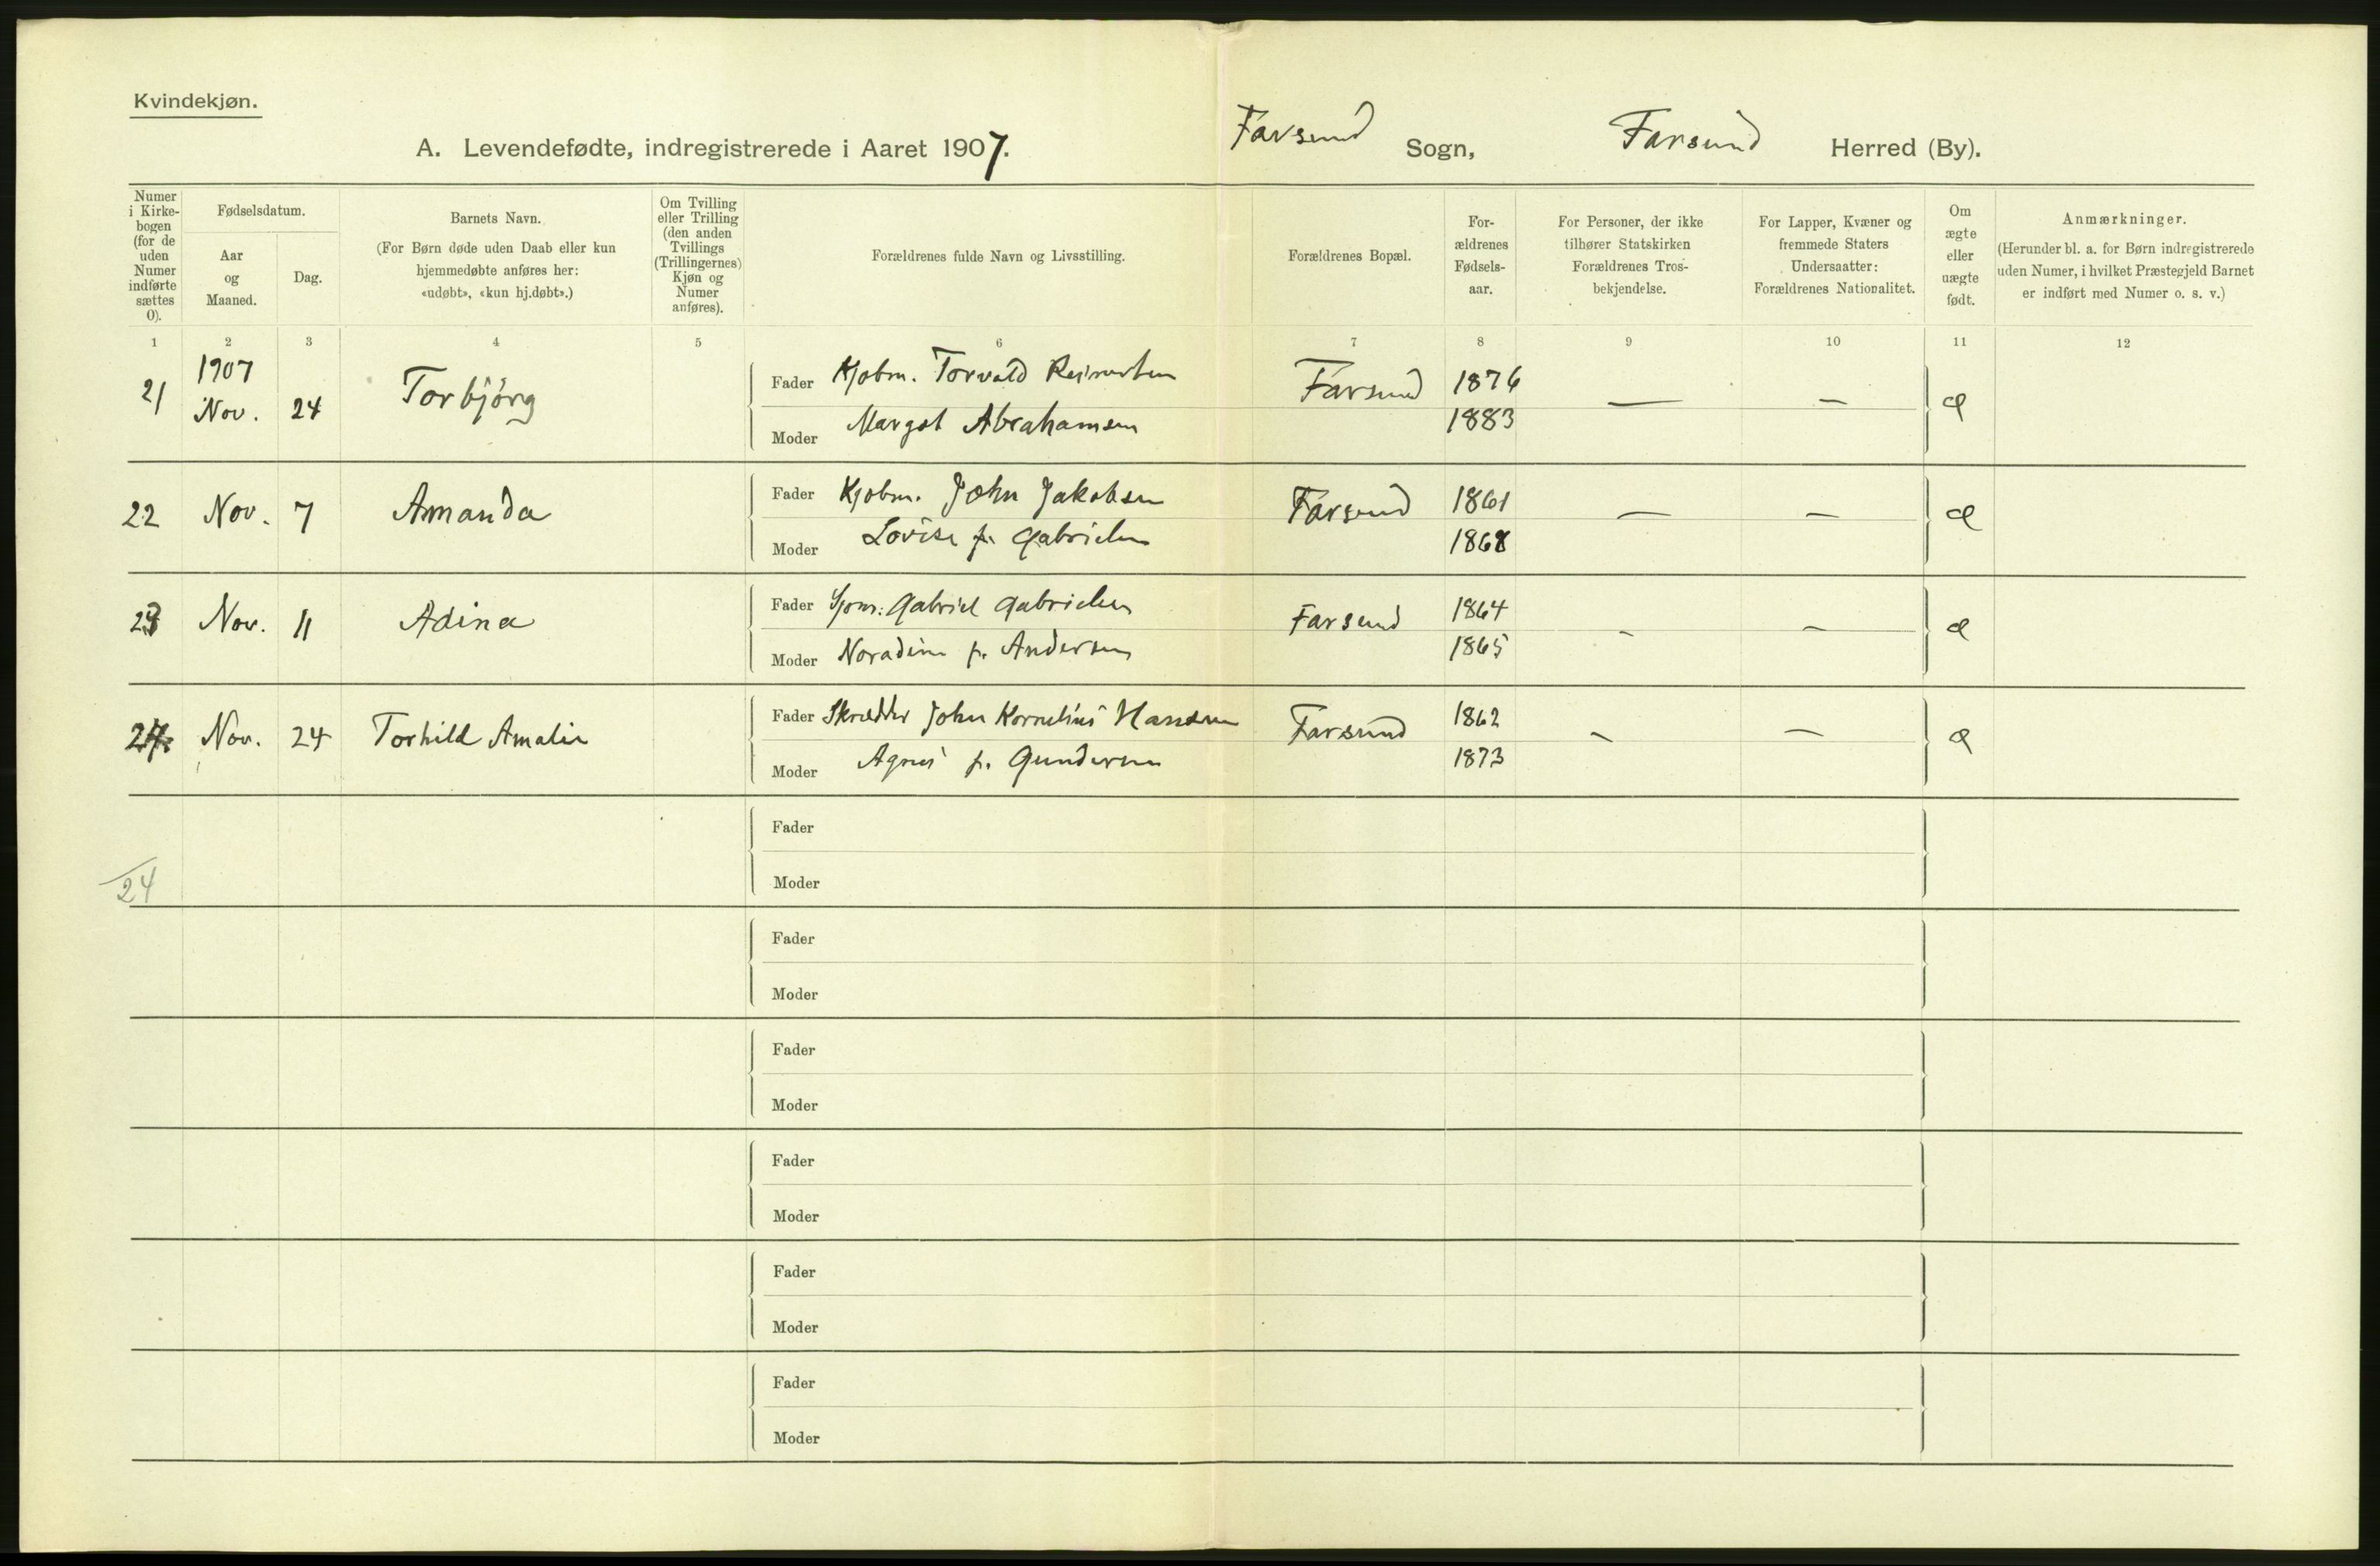 Kvindekjøn.
A. Levendefødte, indregistrerede i Aaret 1907.
Farsund Sogn, Farsund Herred (By).
Numer i Kirkebogen (for de uden Numer indførte sættes 0).
Fødselsdatum.
Aar og Maaned.
Dag.
Barnets Navn.
(For Børn døde uden Daab eller kun hjemmedøbte anføres her: «udøbt», «kun hj.døbt».)
Om Tvilling eller Trilling (den anden Tvillings (Trillingernes) Kjøn og Numer anføres).
Forældrenes fulde Navn og Livsstilling.
Forældrenes Bopæl.
For-ældrenes Fødsels-aar.
For Personer, der ikke tilhører Statskirken Forældrenes Tros-bekjendelse.
For Lapper, Kvæner og fremmede Staters Undersaatter: Forældrenes Nationalitet.
Om ægte eller uægte født.
Anmærkninger.
(Herunder bl. a. for Børn indregistrerede uden Numer, i hvilket Præstegjeld Barnet er indført med Numer o. s. v.)
1 2 3 4 5 6 7 8 9 10 11 12
21 1907 Nov. 24 Torbjörg Fader Kjobm. Torvald Reinertsen Farsund 1876 — — æ
Moder Margot Abrahamsen 1883
22 Nov. 7 Amanda Fader Kjobm. John Jakobsen Farsund 1861 — — æ
Moder Lovise f. Gabrielsen 1868
23 Nov. 11 Adina Fader Sjom: Gabriel Gabrielsen Farsund 1864 - — æ
Moder Noradine f. Andersen 1865
24 Nov. 24 Torhild Amalie Fader Skrædder John Kornelius Hansen Farsund 1862 - — æ
Moder Agnes f. Gundersen 1873
Fader
Moder
24
Fader
Moder
Fader
Moder
Fader
Moder
Fader
Moder
Fader
Moder